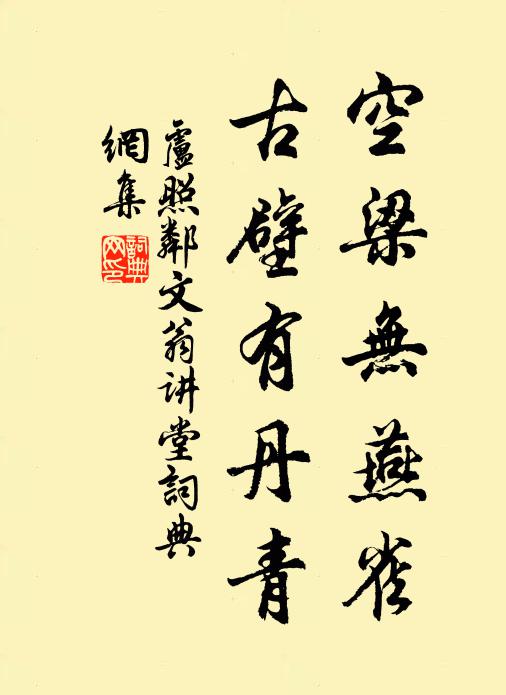 空梁無燕雀
古壁有丹青
盧照鄰文翁讲堂詞典
網集
詞典
网印